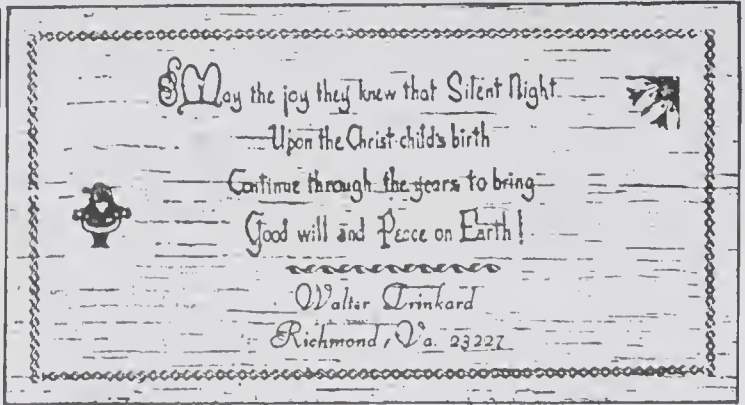 May the joy they knew that Silent Night
Upon the Christ-child's birth
Continue through the years to bring
Good will and Peace on Earth!
Walter Trinkard
Richmond, Va. 23227